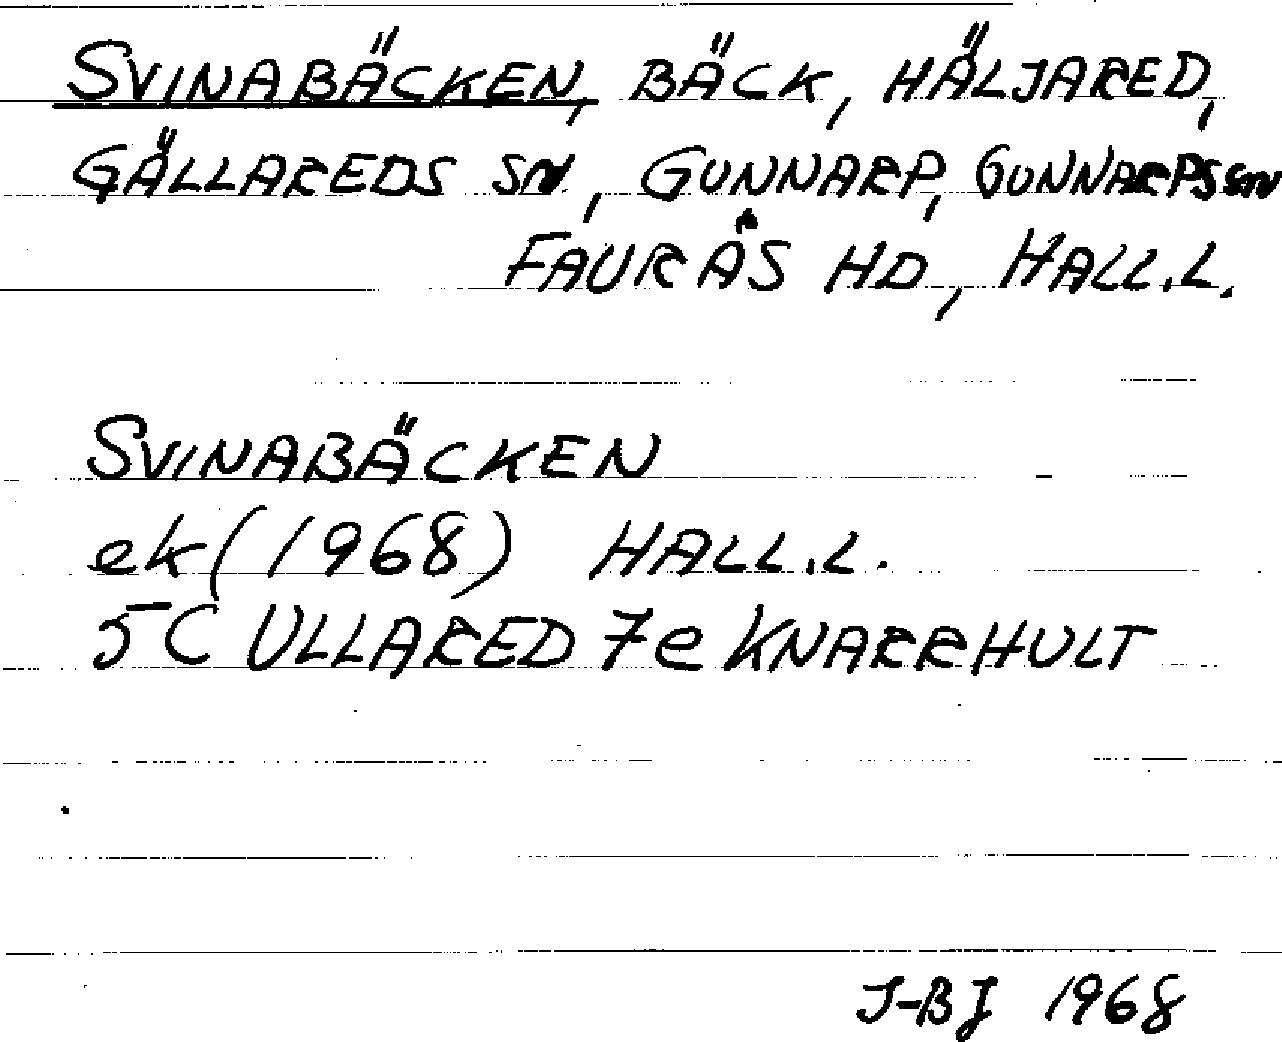 SVINABÄCKEN, BÄCK, HÄLJARED,
GÄLLAREDS SN, GUNNARP, GUNNARPS SN
FAURÅS HD, HALL.L.
SVINABÄCKEN
ek(1968) HALL.L.
5C ULLARED 7e KNARRHULT
J-BJ 1968